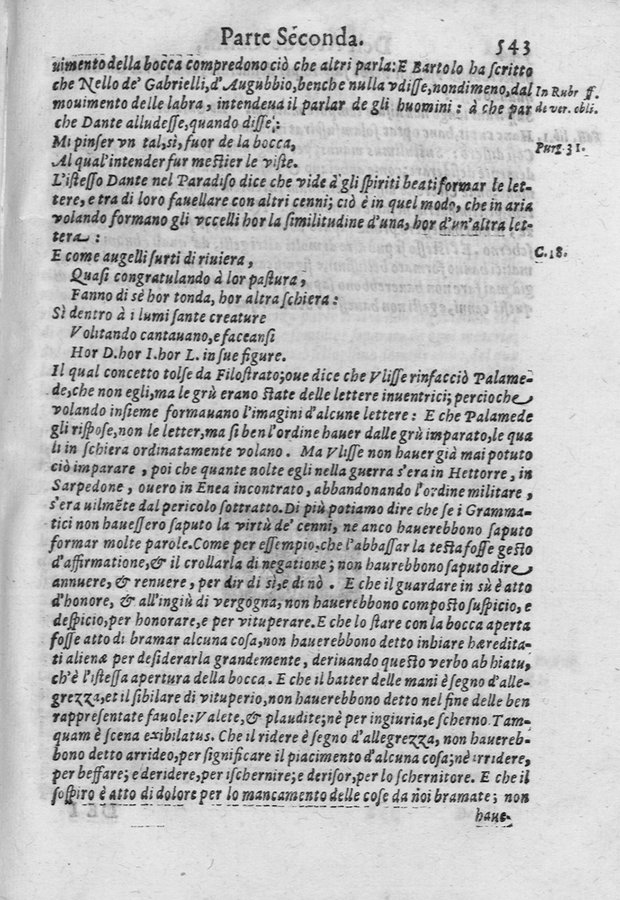 Parte Seconda.
543
uimento della bocca compredono ciò che altri parla: E Bartolo ha scritto
che Nello de' Gabrielli, d'Augubbio, benche nulla vdisse, nondimeno, dal
In Rubr ff.
mouimento delle labra, intendeua il parlar de gli huomini: à che par
de ver. obli.
che Dante alludesse, quando disse:
Mi pinser vn tal, sì, fuor de la bocca,
Purg. 31.
Al qual'intender fur mestier le viste.
L'istesso Dante nel Paradiso dice che vide à gli spiriti beati formar le let-
tere, e tra di loro fauellare con altri cenni; ciò è in quel modo, che in aria
volando formano gli vccelli hor la similitudine d'una, hor d'un'altra let-
tera:
E come augelli surti di riuiera,
C. 18.
Quasi congratulando à lor pastura,
Fanno di sè hor tonda, hor altra schiera:
Sì dentro à i lumi sante creature
Volitando cantauano, e faceansi
Hor D. hor I. hor L. in sue figure.
Il qual concetto tolse da Filostrato; oue dice che Vlisse rinfacciò Palame-
de, che non egli, ma le grù erano state delle lettere inuentrici; percioche
volando insieme formauano l'imagini d'alcune lettere: E che Palamede
gli rispose, non le letter, ma si ben l'ordine hauer dalle grù imparato, le qua
li in schiera ordinatamente volano. Ma Vlisse non hauer già mai potuto
ciò imparare, poi che quante nolte egli nella guerra s'era in Hettorre, in
Sarpedone, ouero in Enea incontrato, abbandonando l'ordine militare,
s'era uilmẽte dal pericolo sottratto. Di più potiamo dire che se i Gramma-
tici non hauessero saputo la virtù de' cenni, ne anco hauerebbono saputo
formar molte parole. Come per essempio, che l'abbassar la testa fosse gesto
d'affirmatione, & il crollarla di negatione; non haurebbono saputo dire
annuere, & renuere, per dir di sì, e di nò. E che il guardare in sù è atto
d'honore, & all'ingiù di vergogna, non hauerebbono composto suspicio, e
despicio, per honorare, e per vituperare. E che lo stare con la bocca aperta
fosse atto di bramar alcuna cosa, non hauerebbono detto inhiare hæredita-
ti alienæ per desiderarla grandemente, deriuando questo verbo ab hiatu,
ch'è l'istessa apertura della bocca. E che il batter delle mani è segno d'alle-
grezza, et il sibilare di vituperio, non hauerebbono detto nel fine delle ben
rappresentate fauole: Valete, & plaudite; nè per ingiuria, e scherno Tam-
quam è scena exibilatus. Che il ridere è segno d'allegrezza, non hauereb-
bono detto arrideo, per significare il piacimento d'alcuna cosa; nè irridere,
per beffare; e deridere, per ischernire; e derisor, per lo schernitore. E che il
sospiro è atto di dolore per lo mancamento delle cose da noi bramate; non
haue-